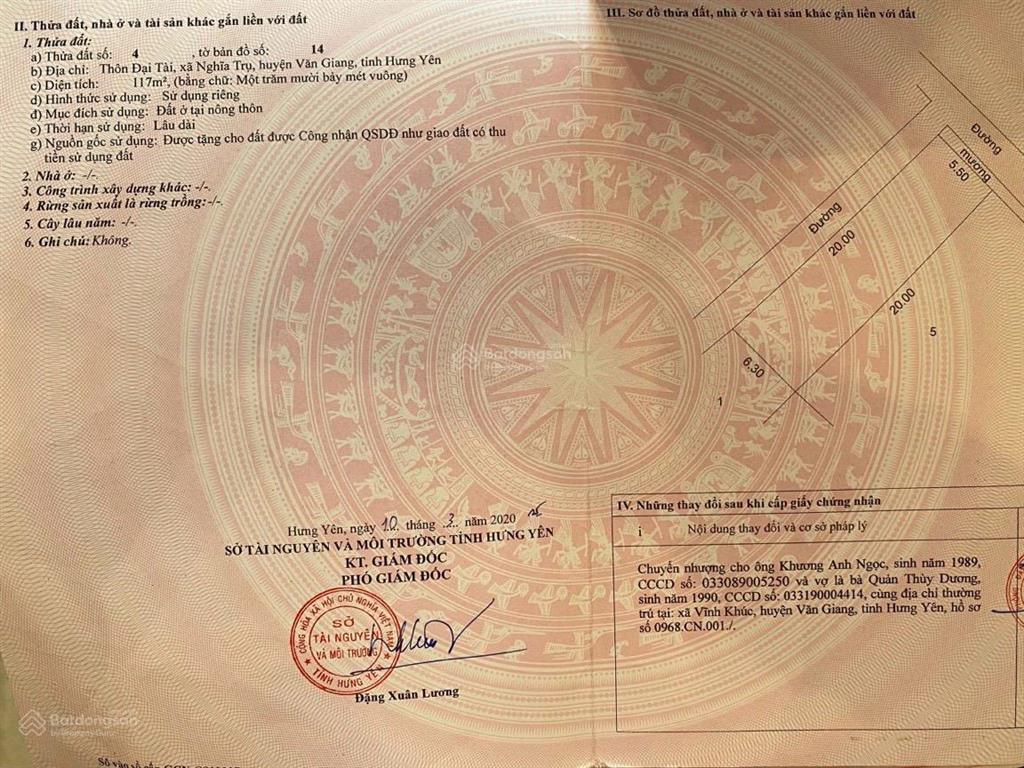 II. Thửa đất, nhà ở và tài sản khác gắn liền với đất
1. Thửa đất:
a) Thửa đất số: 4 , tờ bản đồ số: 14
b) Địa chỉ: Thôn Đại Tài, xã Nghĩa Trụ, huyện Văn Giang, tỉnh Hưng Yên
c) Diện tích: 117m², (bằng chữ: Một trăm mười bảy mét vuông)
d) Hình thức sử dụng: Sử dụng riêng
đ) Mục đích sử dụng: Đất ở tại nông thôn
e) Thời hạn sử dụng: Lâu dài
g) Nguồn gốc sử dụng: Được tặng cho đất được Công nhận QSDĐ như giao đất có thu
tiền sử dụng đất
2. Nhà ở: -/-.
3. Công trình xây dựng khác: -/-.
4. Rừng sản xuất là rừng trồng:-/-.
5. Cây lâu năm: -/-.
6. Ghi chú: Không.
Hưng Yên, ngày 10 tháng 3 năm 2020
SỞ TÀI NGUYÊN VÀ MÔI TRƯỜNG TỈNH HƯNG YÊN
KT. GIÁM ĐỐC
PHÓ GIÁM ĐỐC
CỘNG HÒA XÃ HỘI CHỦ NGHĨA VIỆT NAM
SỞ
TÀI NGUYÊN
VÀ MÔI TRƯỜNG
TỈNH HƯNG YÊN
Đặng Xuân Lương
III. Sơ đồ thửa đất, nhà ở và tài sản khác gắn liền với đất
Đường
mương
5.50
Đường
20.00
20.00
5
6.30
1
IV. Những thay đổi sau khi cấp giấy chứng nhận
Nội dung thay đổi và cơ sở pháp lý
Chuyển nhượng cho ông Khương Anh Ngọc, sinh năm 1989,
CCCD số: 033089005250 và vợ là bà Quản Thùy Dương,
sinh năm 1990, CCCD số: 033190004414, cùng địa chỉ thường
trú tại: xã Vĩnh Khúc, huyện Văn Giang, tỉnh Hưng Yên, hồ sơ
số 0968.CN.001./.
Batdongsan
by PropertyGuru
Batdongsan
by PropertyGuru
Số vào sổ cấp GCN: